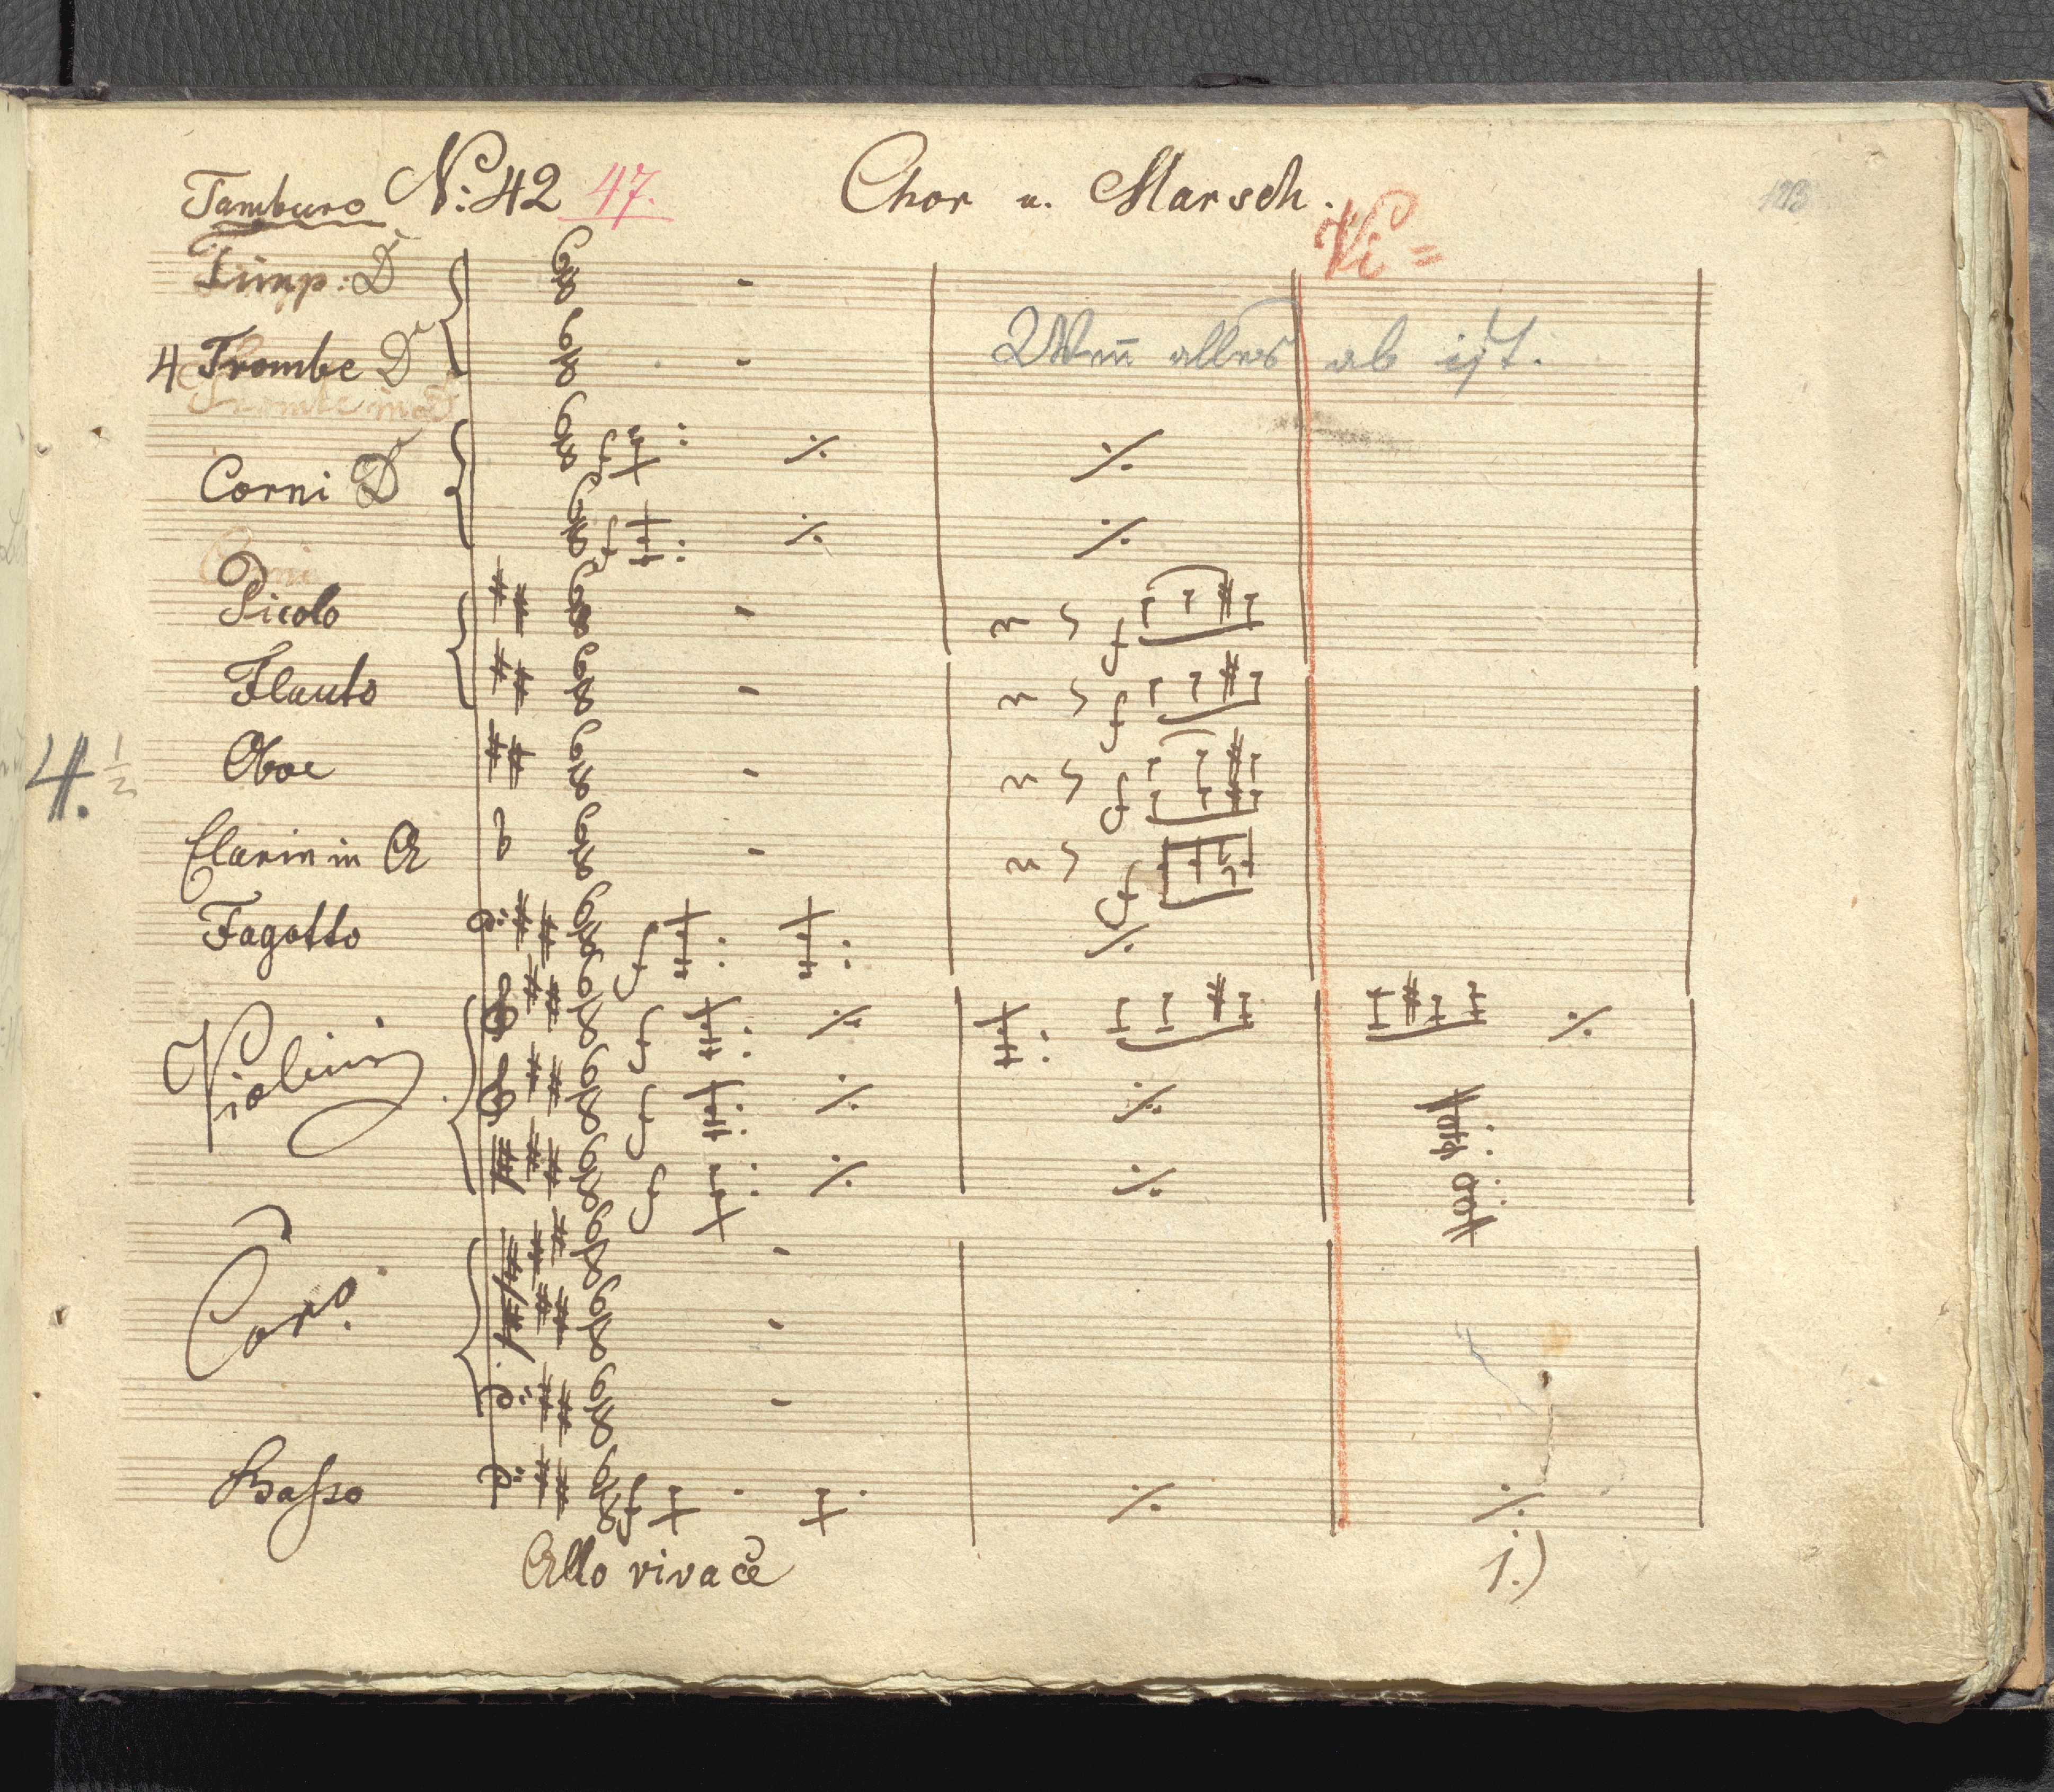 Tamburo No: 42 47. Chor u. Marsch.
Vi =
Timp: D
Wen̄ alles ab ist.
4 Trombe D
Trombe in
Corni D
Corni
Picolo
Flauto
4. 1/2
Oboe
Clarin in A
Fagotto
Violini
Coro.
Basso
Allo vivace
1.)